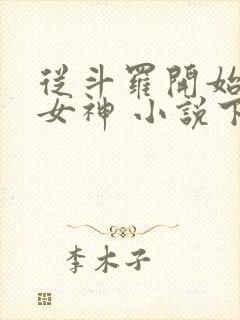 從斗羅開始
女神 小說下
李木子